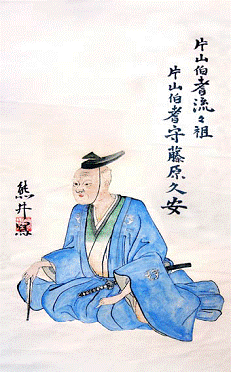 片山伯耆流々祖
片山伯耆守藤原久安
熊井